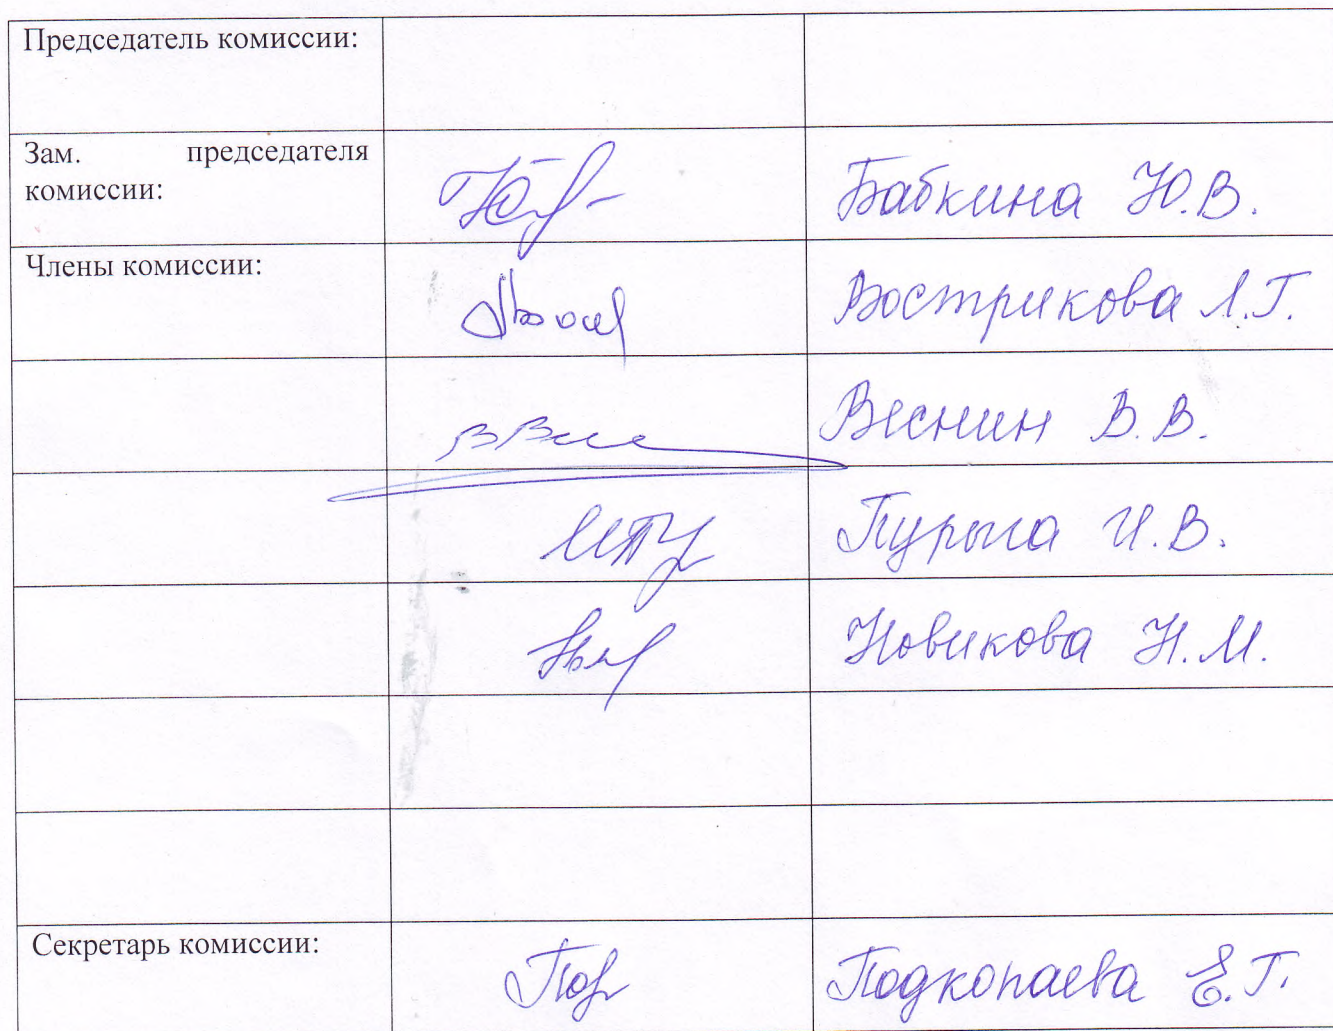 Председатель комиссии:
Зам. председателя
комиссии:
Бабкина Ю.В.
Члены комиссии:
Вострикова Л.Г.
Веснин В.В.
Пурыга И.В.
Новикова Н.М.
Секретарь комиссии:
Подкопаева Е.Г.